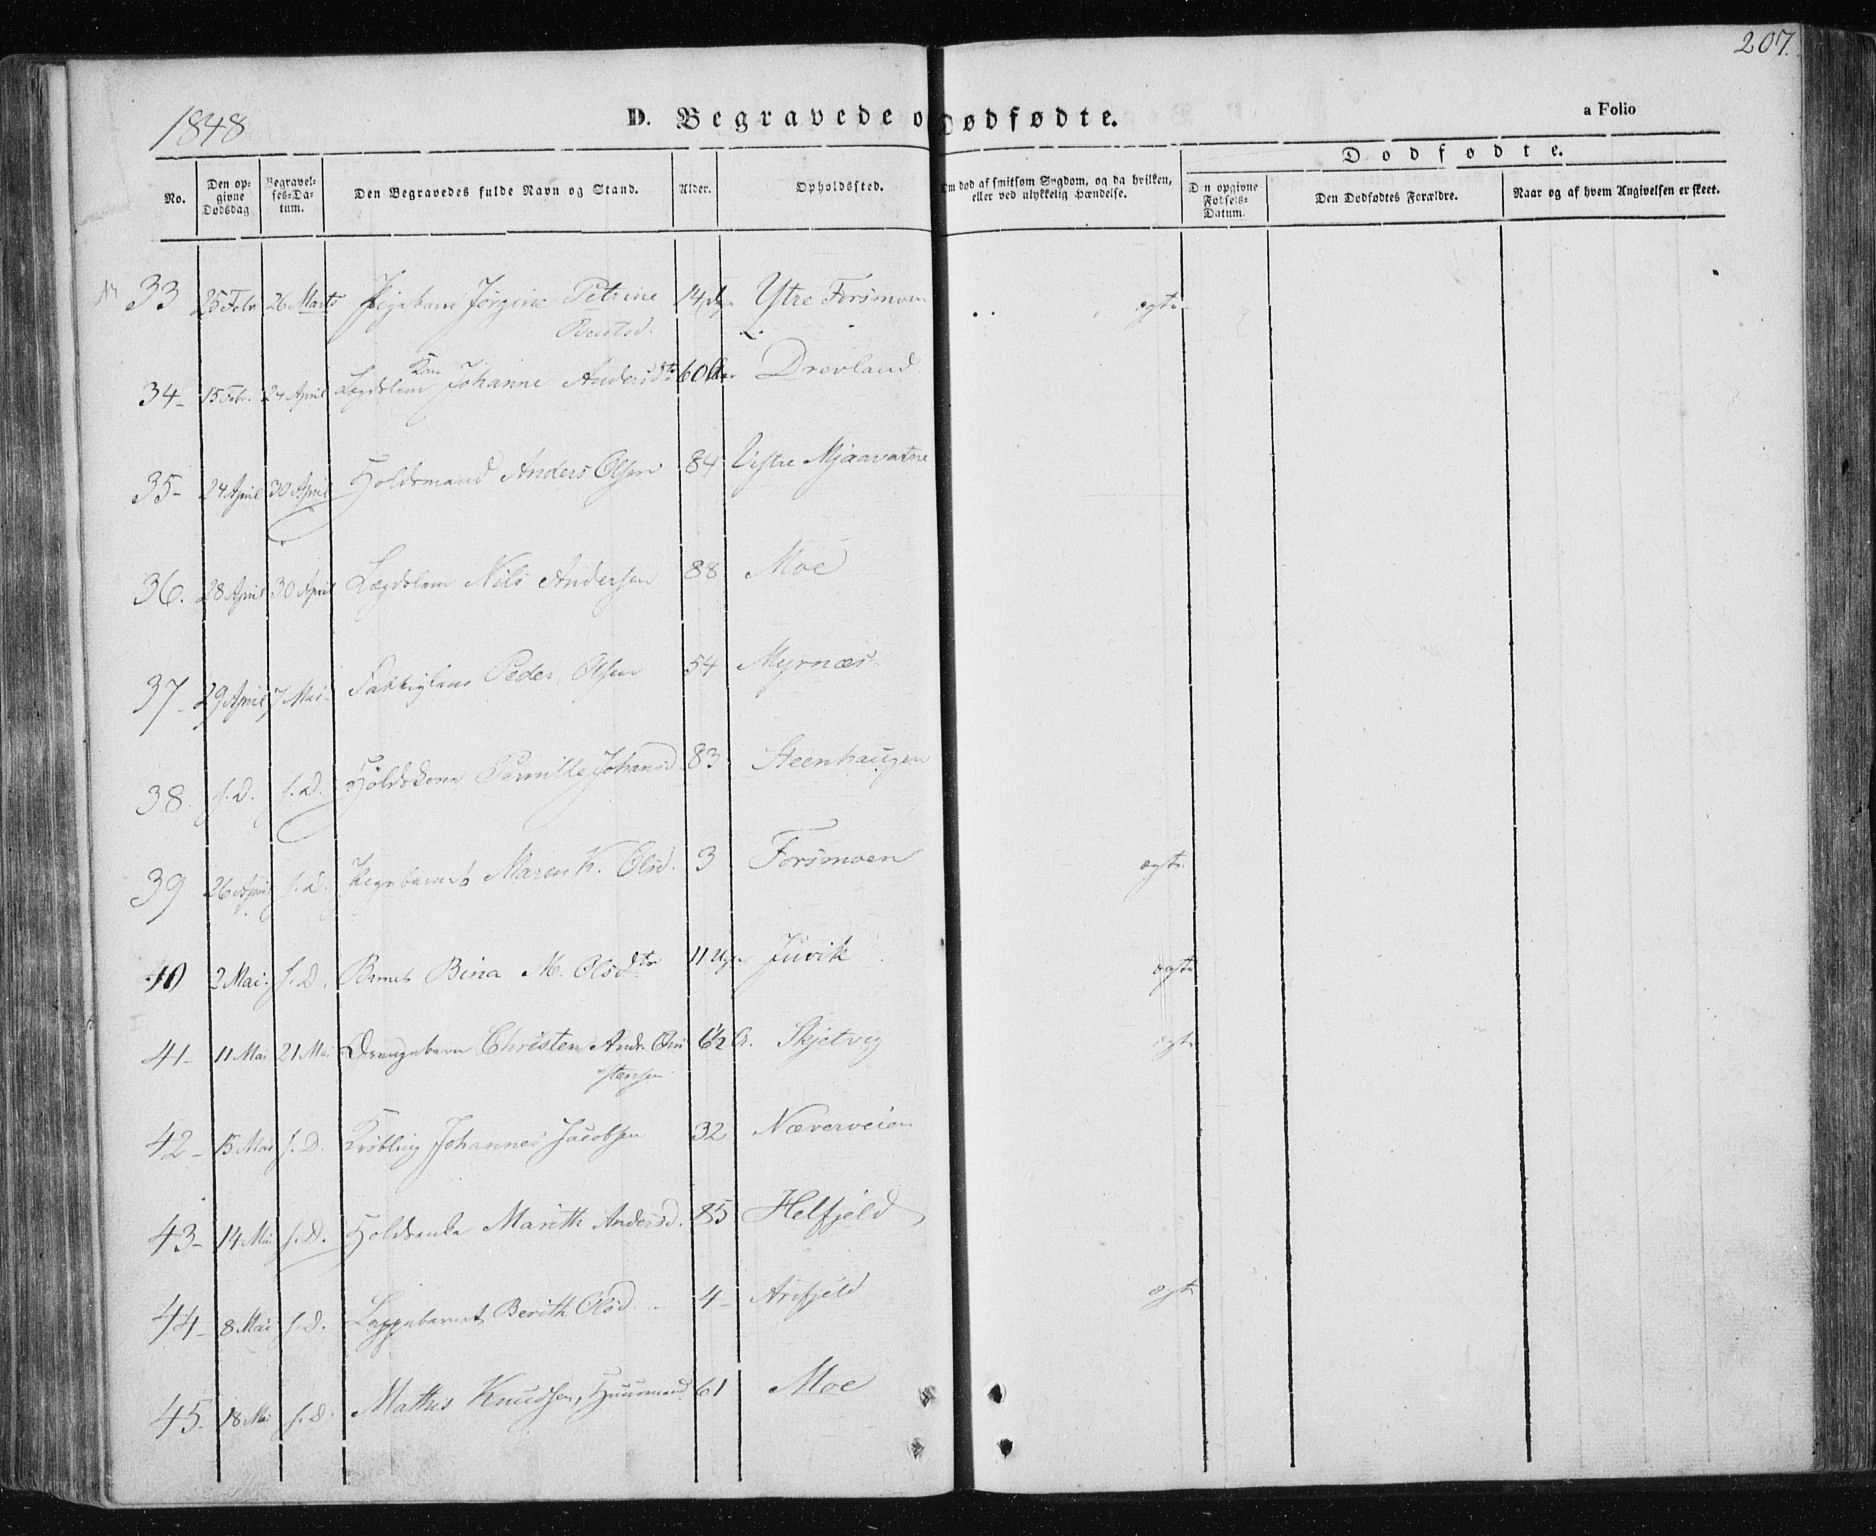 207.
1848
D. Begravede o Dødfødte.
a Folio
Dødfødte.
No.
Den opgivne Dødsdag
Begravelses-Datum.
Den Begravedes fulde Navn og Stand.
Alder.
Opholdssted.
Om død af smitsom Sygdom, og da hvilken, eller ved ulykkelig Hændelse.
Den opgivne Fødsels-Datum.
Den Dødfødtes Forældre.
Naar og af hvem Angivelsen er skeet.
33 25 Febr 26 Marts Pigebarn Jörgine Petrine 14 Dge Ytre Forsmoen ægte
Bentsd.
34- 15 Febr. 24 April Lægdslem Kone Johanne Andersdtr 60 Aar Drevland
35- 24 April 30 April Holdsmand Anders Olsen 84 Vistre Mjaavatne
36. 28 April 30 April Lægdslem Nils Andersen 88 Moe
37- 29 April 7 Mai Fattiglem Peder Olsen 54 Myrnæs
38. s.d. s.d. Holdskone Pernille Johansd. 83 Steenhaugen
39 26 April s.d. Pigebarnet Maren K. Olsd. 3 Forsmoen ægte
40 2 Mai. s.D. Barnet Bina M. Olsdtr 11 Uger Juvik ægte
41- 11 Mai 21 Mai Drengebarn Christen Andr. Chri 6½ A. Skjetvig ægte
stensen
42- 15 Mai s.D. Krøbling Johannes Jacobsen 32 Næverveien
43- 14 Mai s.D. Holdsenke Marith Andersd. 85 Helfjeld
44- 8 Mai s.D. Lappebarnet Berith Olsd. 4- Arefjeld ægt
45. 18 Mai s.D. Mathis Knudsen, Huusmand 61 Moe